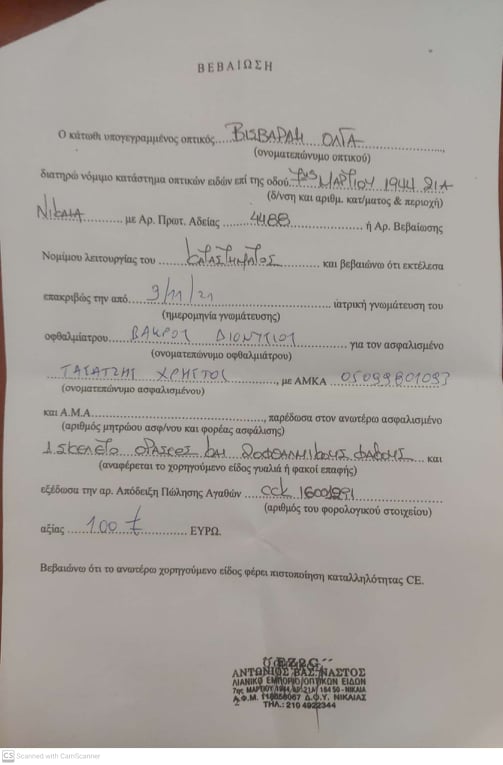 ΒΕΒΑΙΩΣΗ
Ο κάτωθι υπογεγραμμένος οπτικός.....ΒΙΣΒΑΡΔΗ ΟΛΓΑ..........,
(ονοματεπώνυμο οπτικού)
διατηρώ νόμιμο κατάστημα οπτικών ειδών επί της οδού..7ης ΜΑΡΤΙΟΥ 1944 21Α
(δ/νση και αριθμ. κατ/ματος & περιοχή)
ΝΙΚΑΙΑ ........ με Αρ. Πρωτ. Αδείας ..4488.......... ή Αρ. Βεβαίωσης
Νομίμου λειτουργίας του ......ΚΑΤΑΣΤΗΜΑΤΟΣ...... και βεβαιώνω ότι εκτέλεσα
επακριβώς την από....9/11/21.............. ιατρική γνωμάτευση του
(ημερομηνία γνωμάτευσης)
οφθαλμίατρου......ΒΑΚΡΟΣ ΔΙΟΝΥΣΙΟΣ........ για τον ασφαλισμένο
(ονοματεπώνυμο οφθαλμιάτρου)
ΧΡΗΣΤΟΣ........, με ΑΜΚΑ
(ονοματεπώνυμο ασφαλισμένου)
και Α.Μ.Α................................, παρέδωσα στον ανωτέρω ασφαλισμένο
(αριθμός μητρώου ασφ/νου και φορέας ασφάλισης)
1 ΣΚΕΛΕΤΟ ΟΡΑΣΕΩΣ ΚΑΙ 2 ΟΦΘΑΛΜΙΚΟΥΣ ΦΑΚΟΥΣ ... και
(αναφέρεται το χορηγούμενο είδος γυαλιά ή φακοί επαφής)
εξέδωσα την αρ. Απόδειξη Πώλησης Αγαθών ..............
(αριθμός του φορολογικού στοιχείου)
αξίας ....100 €............ ΕΥΡΩ.
Βεβαιώνω ότι το ανωτέρω χορηγούμενο είδος φέρει πιστοποίηση καταλληλότητας CE.
ΑΝΤΩΝΙΟΣ ΒΑΣ. ΝΑΣΤΟΣ
ΛΙΑΝΙΚΟ ΕΜΠΟΡΙΟ ΟΠΤΙΚΩΝ ΕΙΔΩΝ
7ης ΜΑΡΤΙΟΥ 1944 ΑΡ.21Α 18450 - ΝΙΚΑΙΑ
Α.Φ.Μ. Δ.Ο.Υ. ΝΙΚΑΙΑΣ
ΤΗΛ.: 210 4922344
CS Scanned with CamScanner